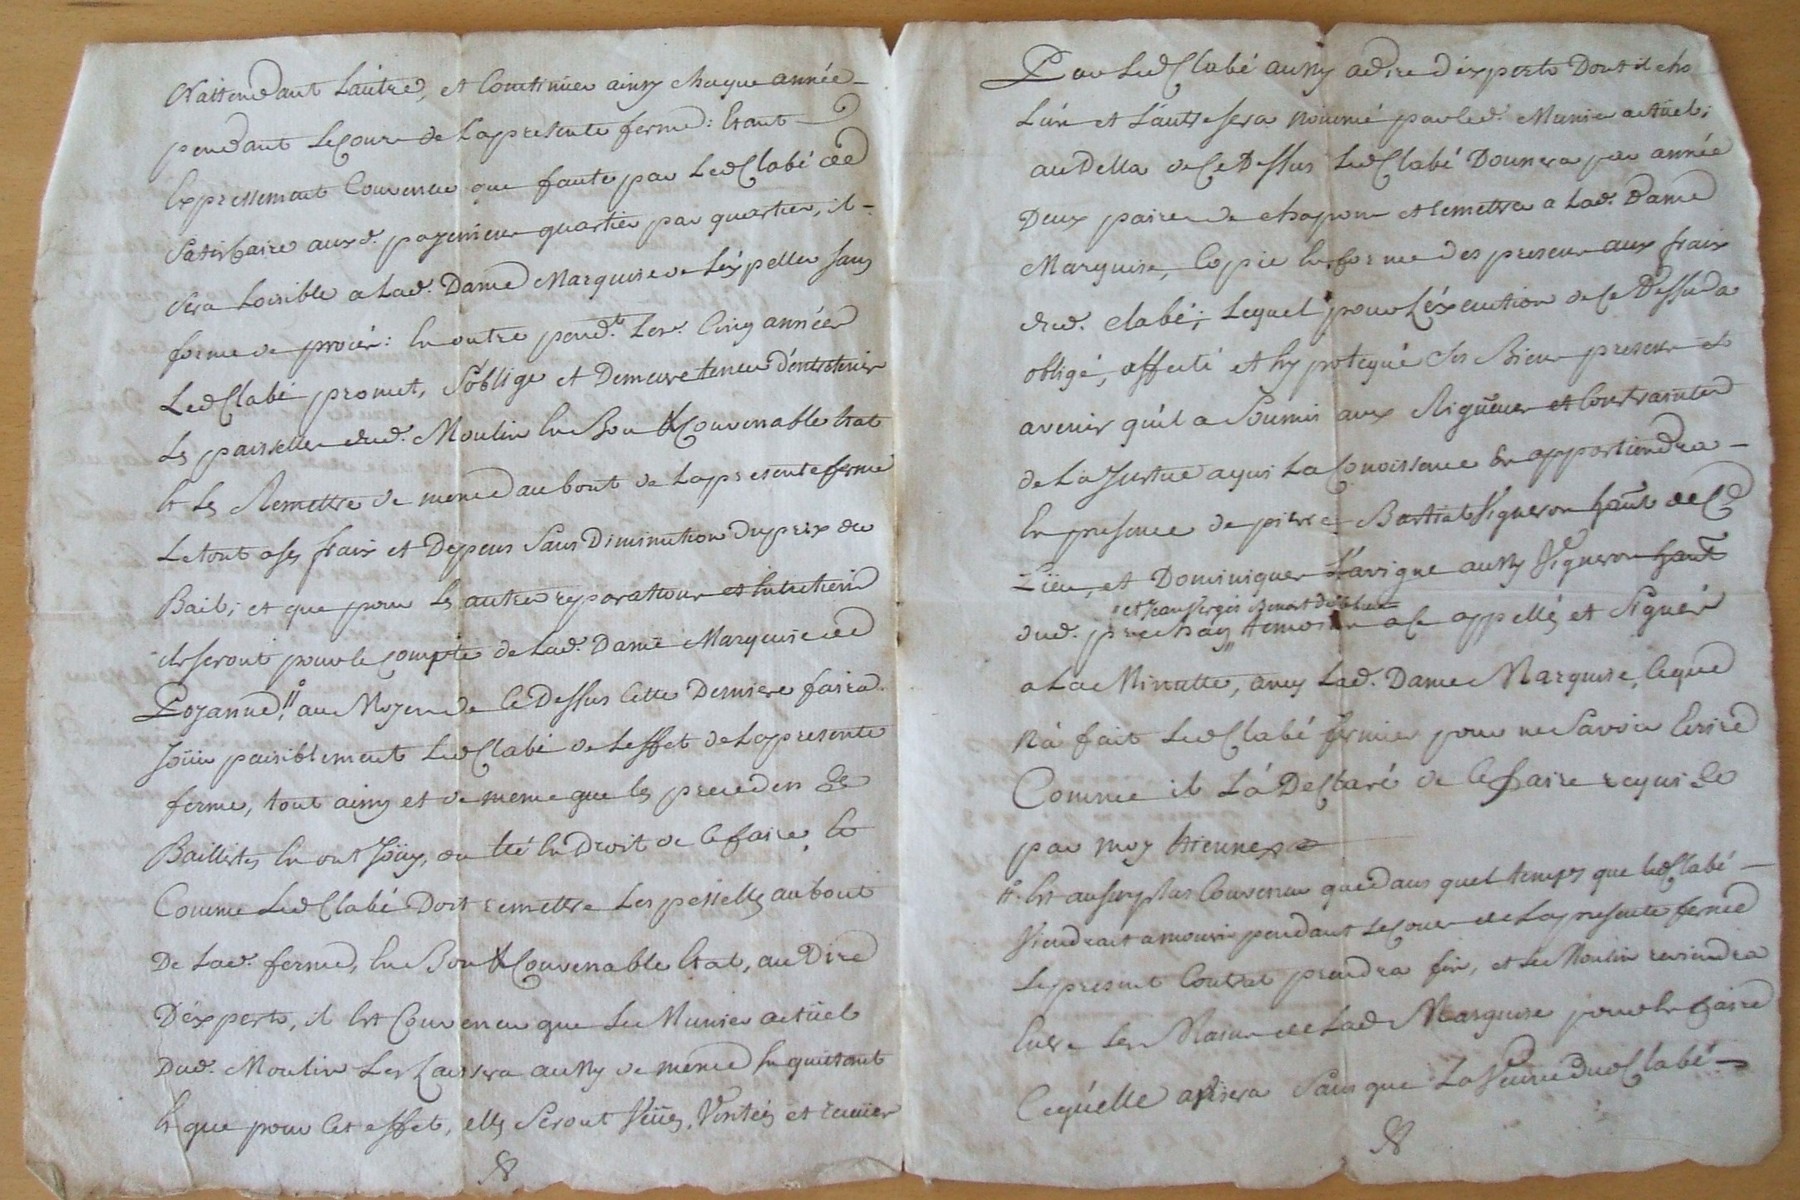 N'attendant L'autre, et Continuer ainsy chaque année
pendant Le Cours de La presente ferme: Etant
Expressement Convenu que faute par Led Clabé de
Satisfaire auxd. payemens quartier par quartier, il
Sera Loisible a Lad. Dame Marquise de L'expeller sans
forme de procés: En outre pend.t Les. Cinq années
Led Clabé promet, S'oblige et Demeure tenu d'entretenir
Les paisselles dud. Moulin En Bon & Convenable Etat
Et Les Remettre de meme au bout de La presente ferme
Le tout a ses fraix et Depens Sans Diminution du prix du
Bail; et que pour Les autres reparations et Entretiens
ils seront pour le compte de Lad. Dame Marquise de
Poyanne," au Moyen de Ce Dessus Cette Derniere faira
Joüir paisiblement Led Clabé de L'effet de La presente
ferme, tout ainsy et de meme que les precedens
Baillistes En ont Joüy, ou Eté En Droit de Ce faire, Et
Comme Led Clabé Doit remettre Les pesselles au bout
De Lad. ferme, En Bon & Convenable Etat, au Dire
D'experts, il Est Convenu que Le Munier actüel
Dud. Moulin Les Laissera aussy de meme En quitant
Et que pour Cet effet, elles Seront Veües, Visitées et
Par Led Clabé aussy a dire d'experts Dont il
L'un et L'autre sera nommé par led. Munier actüel;
au Della de Ce Dessus Led Clabé Donnera par année
Deux paires de chapons et remettra a Lad. Dame
Marquise, Copie En forme des presens aux fraix
dud. Clabé; Lequel pour L'éxecution de Ce Dessus a
obligé, affecté et hypotequé ses Biens presens et
avenir qu'il a Soumis aux Rigueurs et Contraintes
de La Justice a qui La Conoissance En appartiendra
En presence de pierre Bastiat Vigneron haut de Ce
Lieu, et Dominique Lavigne aussy Vigneron haut
et Jean
dud. temoins a Ce appellés et Signés
a La Minutte, avec Lad. Dame Marquise, Ce que
N'a fait Led Clabé fermier pour ne Savoir Ecrire
Comme il L'a Declaré de Ce faire requis
par moy
". Est au surplus Convenu que dans quel temps que led Clabé
Viendrait a mourir pendant Le Cours de La presente ferme
Le present Contrat prendra fin, et Le Moulin reviendra
Entre Les Mains de Lad Marquise pour En faire
Ce qu'elle avisera Sans que La Veuve dud Clabé